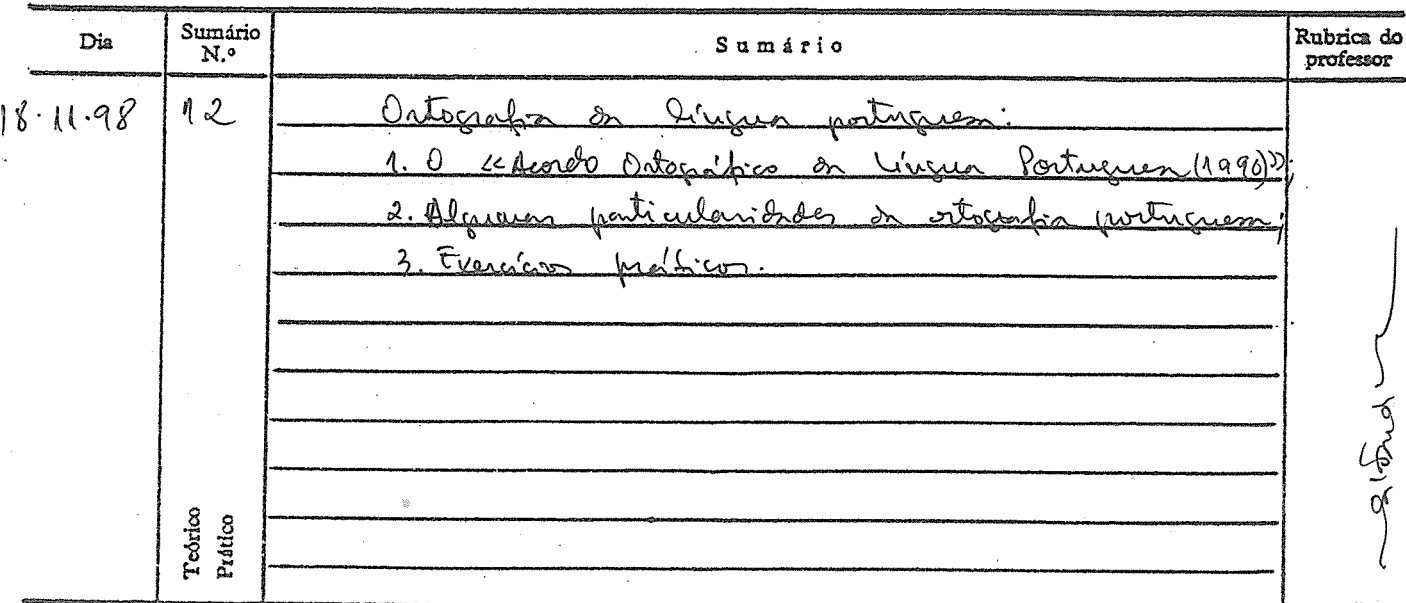 Dia
Sumário N.º
Sumário
Rubrica do professor
18.11.98
12
Ortografia da língua portuguesa:
1. O «Acordo Ortográfico da Língua Portuguesa (1990)»;
2. Algumas particularidades da ortografia portuguesa;
3. Exercícios práticos.
Teórico
Prático